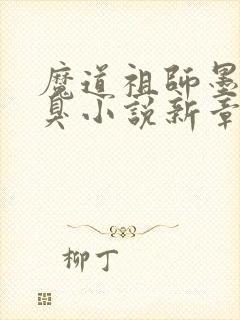 魔道祖師墨
臭小説新章
柳丁